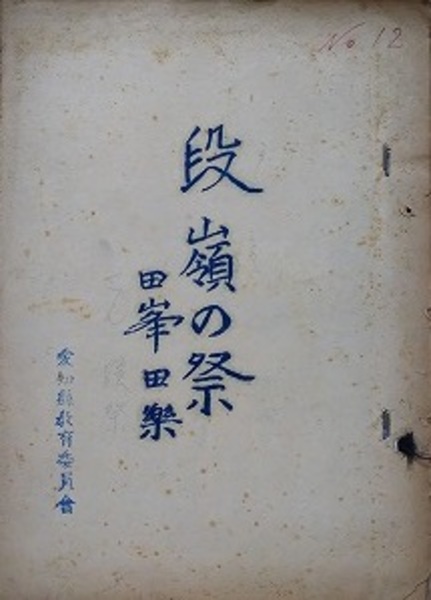 No 12
段嶺の祭
田峯田樂
愛知縣教育委員會